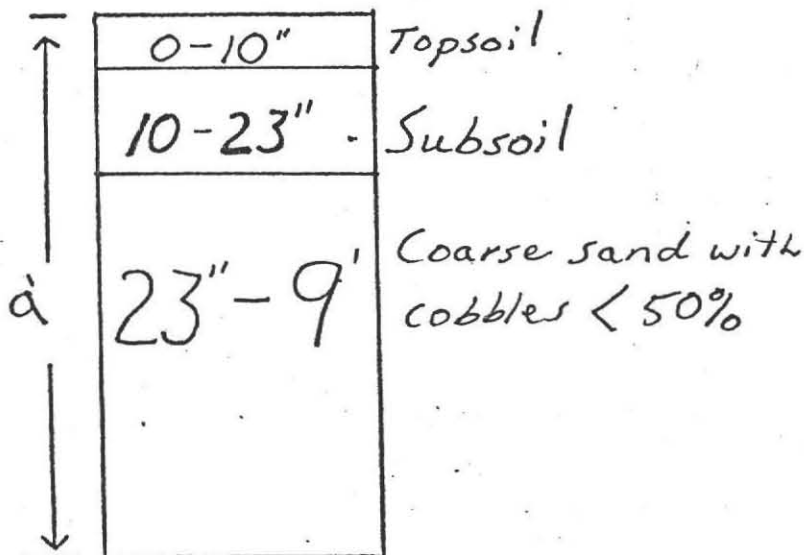 0-10" Topsoil.
10-23" Subsoil
9' 23"-9' Coarse sand with
cobbles < 50%